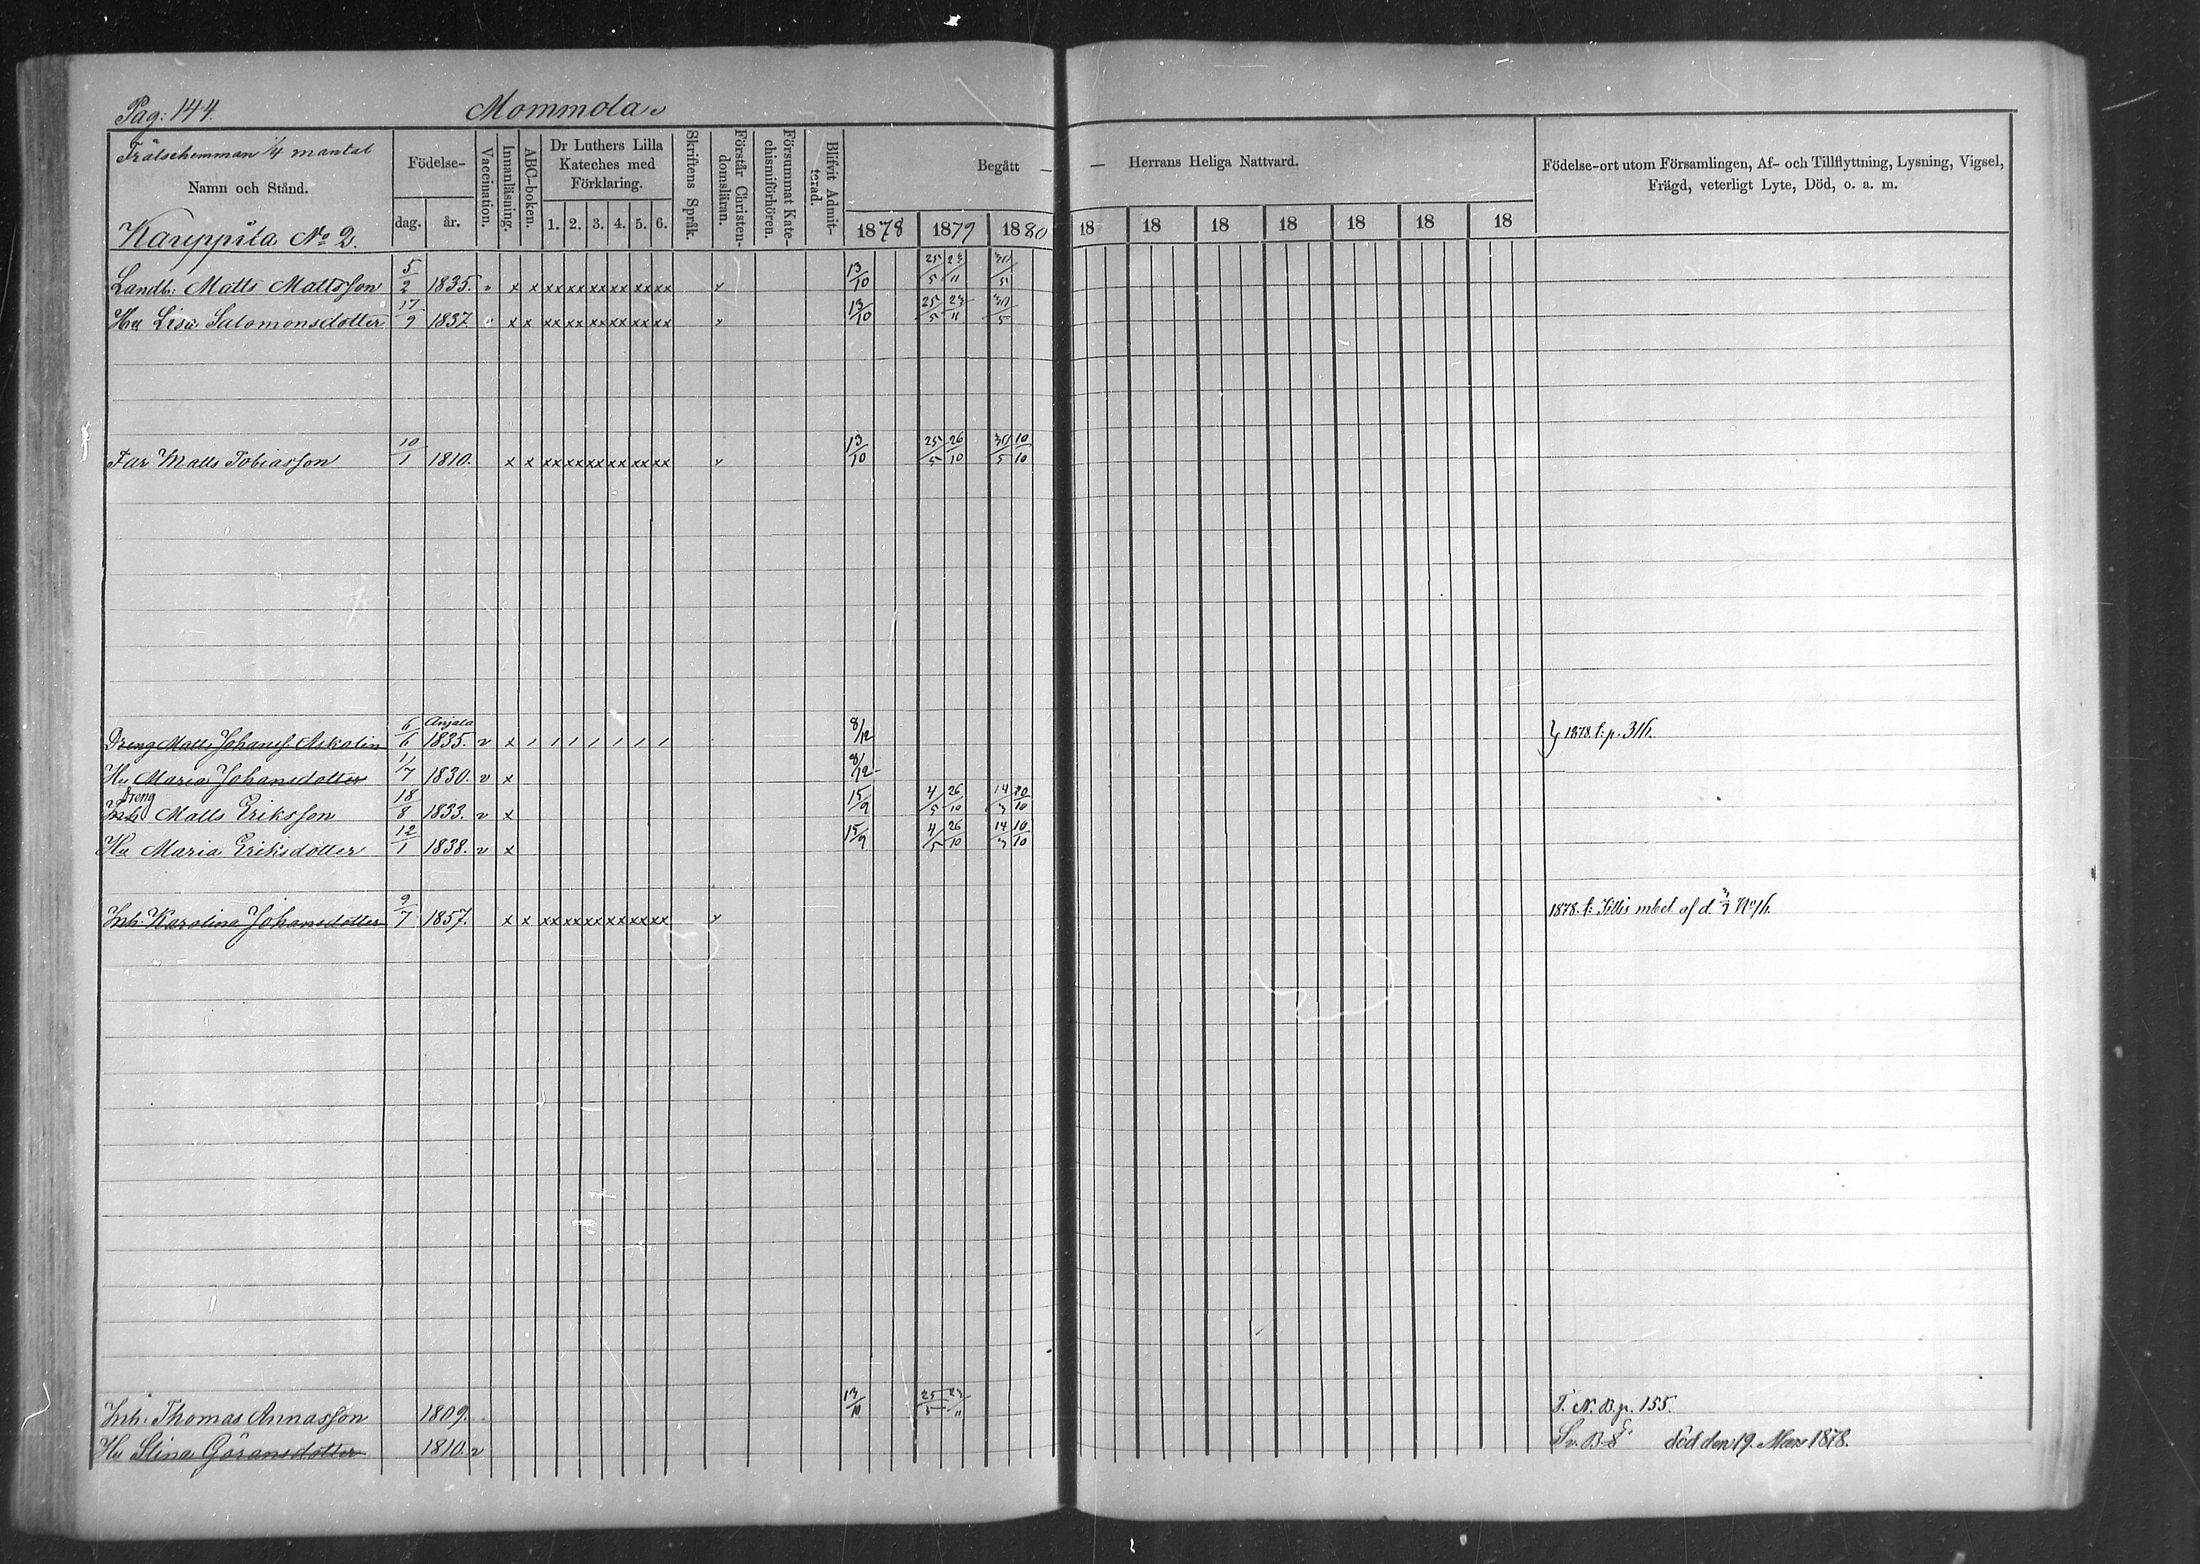 Pag: 144. Mommola
Frälsehemman 1/4 mantal
Namn och Stånd.
Kareppila No 2.
Födelse-
dag. år.
Vaccination.
Innanläsning.
ABC-boken.
Dr Luthers Lilla
Kateches med
Förklaring.
1. 2. 3. 4. 5. 6.
Skriftens Språk.
Förstår Christen-
domsläran.
Försummat Kate-
chismiförhören.
Blifvit Admit-
terad.
Begått — — Herrans Heliga Nattvard.
1878 1879 1880 18 18 18 18 18 18 18
Födelse-ort utom Församlingen, Af- och Tillflyttning, Lysning, Vigsel,
Frägd, veterligt Lyte, Död, o. a. m.
Landb: Matts Mattsson 5/2 1835. v x x xx xx xx xx xx xx v 13/10 25/5 23/11 30/5
Hu Lisa Salomonsdotter 17/9 1837. v x x xx xx xx xx xx xx v 13/10 25/5 23/11 30/5
Far Matts Tobiasson 10/1 1810. x x xx xx xx xx xx xx v 13/10 25/5 26/10 30/5 10/10
Dreng Matts Johanss. Askolin 6/6 Anjala 1835. v x / / / / / / / 8/12 } 1878 t. p. 316.
Hu Maria Johansdotter 1/7 1830. v x 8/12
Dreng
Inh. Matts Eriksson 18/8 1833. v x 15/9 4/5 26/10 14/3 10/10
Hu Maria Eriksdotter 12/1 1838. v x 15/9 4/5 26/10 14/3 10/10
Inh. Karolina Johansdotter 9/7 1857. x x xx xx xx xx xx xx v 1878. t. mbet af d.
Inh. Thomas Annasson 1809. 13/10 25/5 23/11 T. N. B. p. 155.
Hu Stina Göransdotter 1810. v död den 19 Mars 1878.